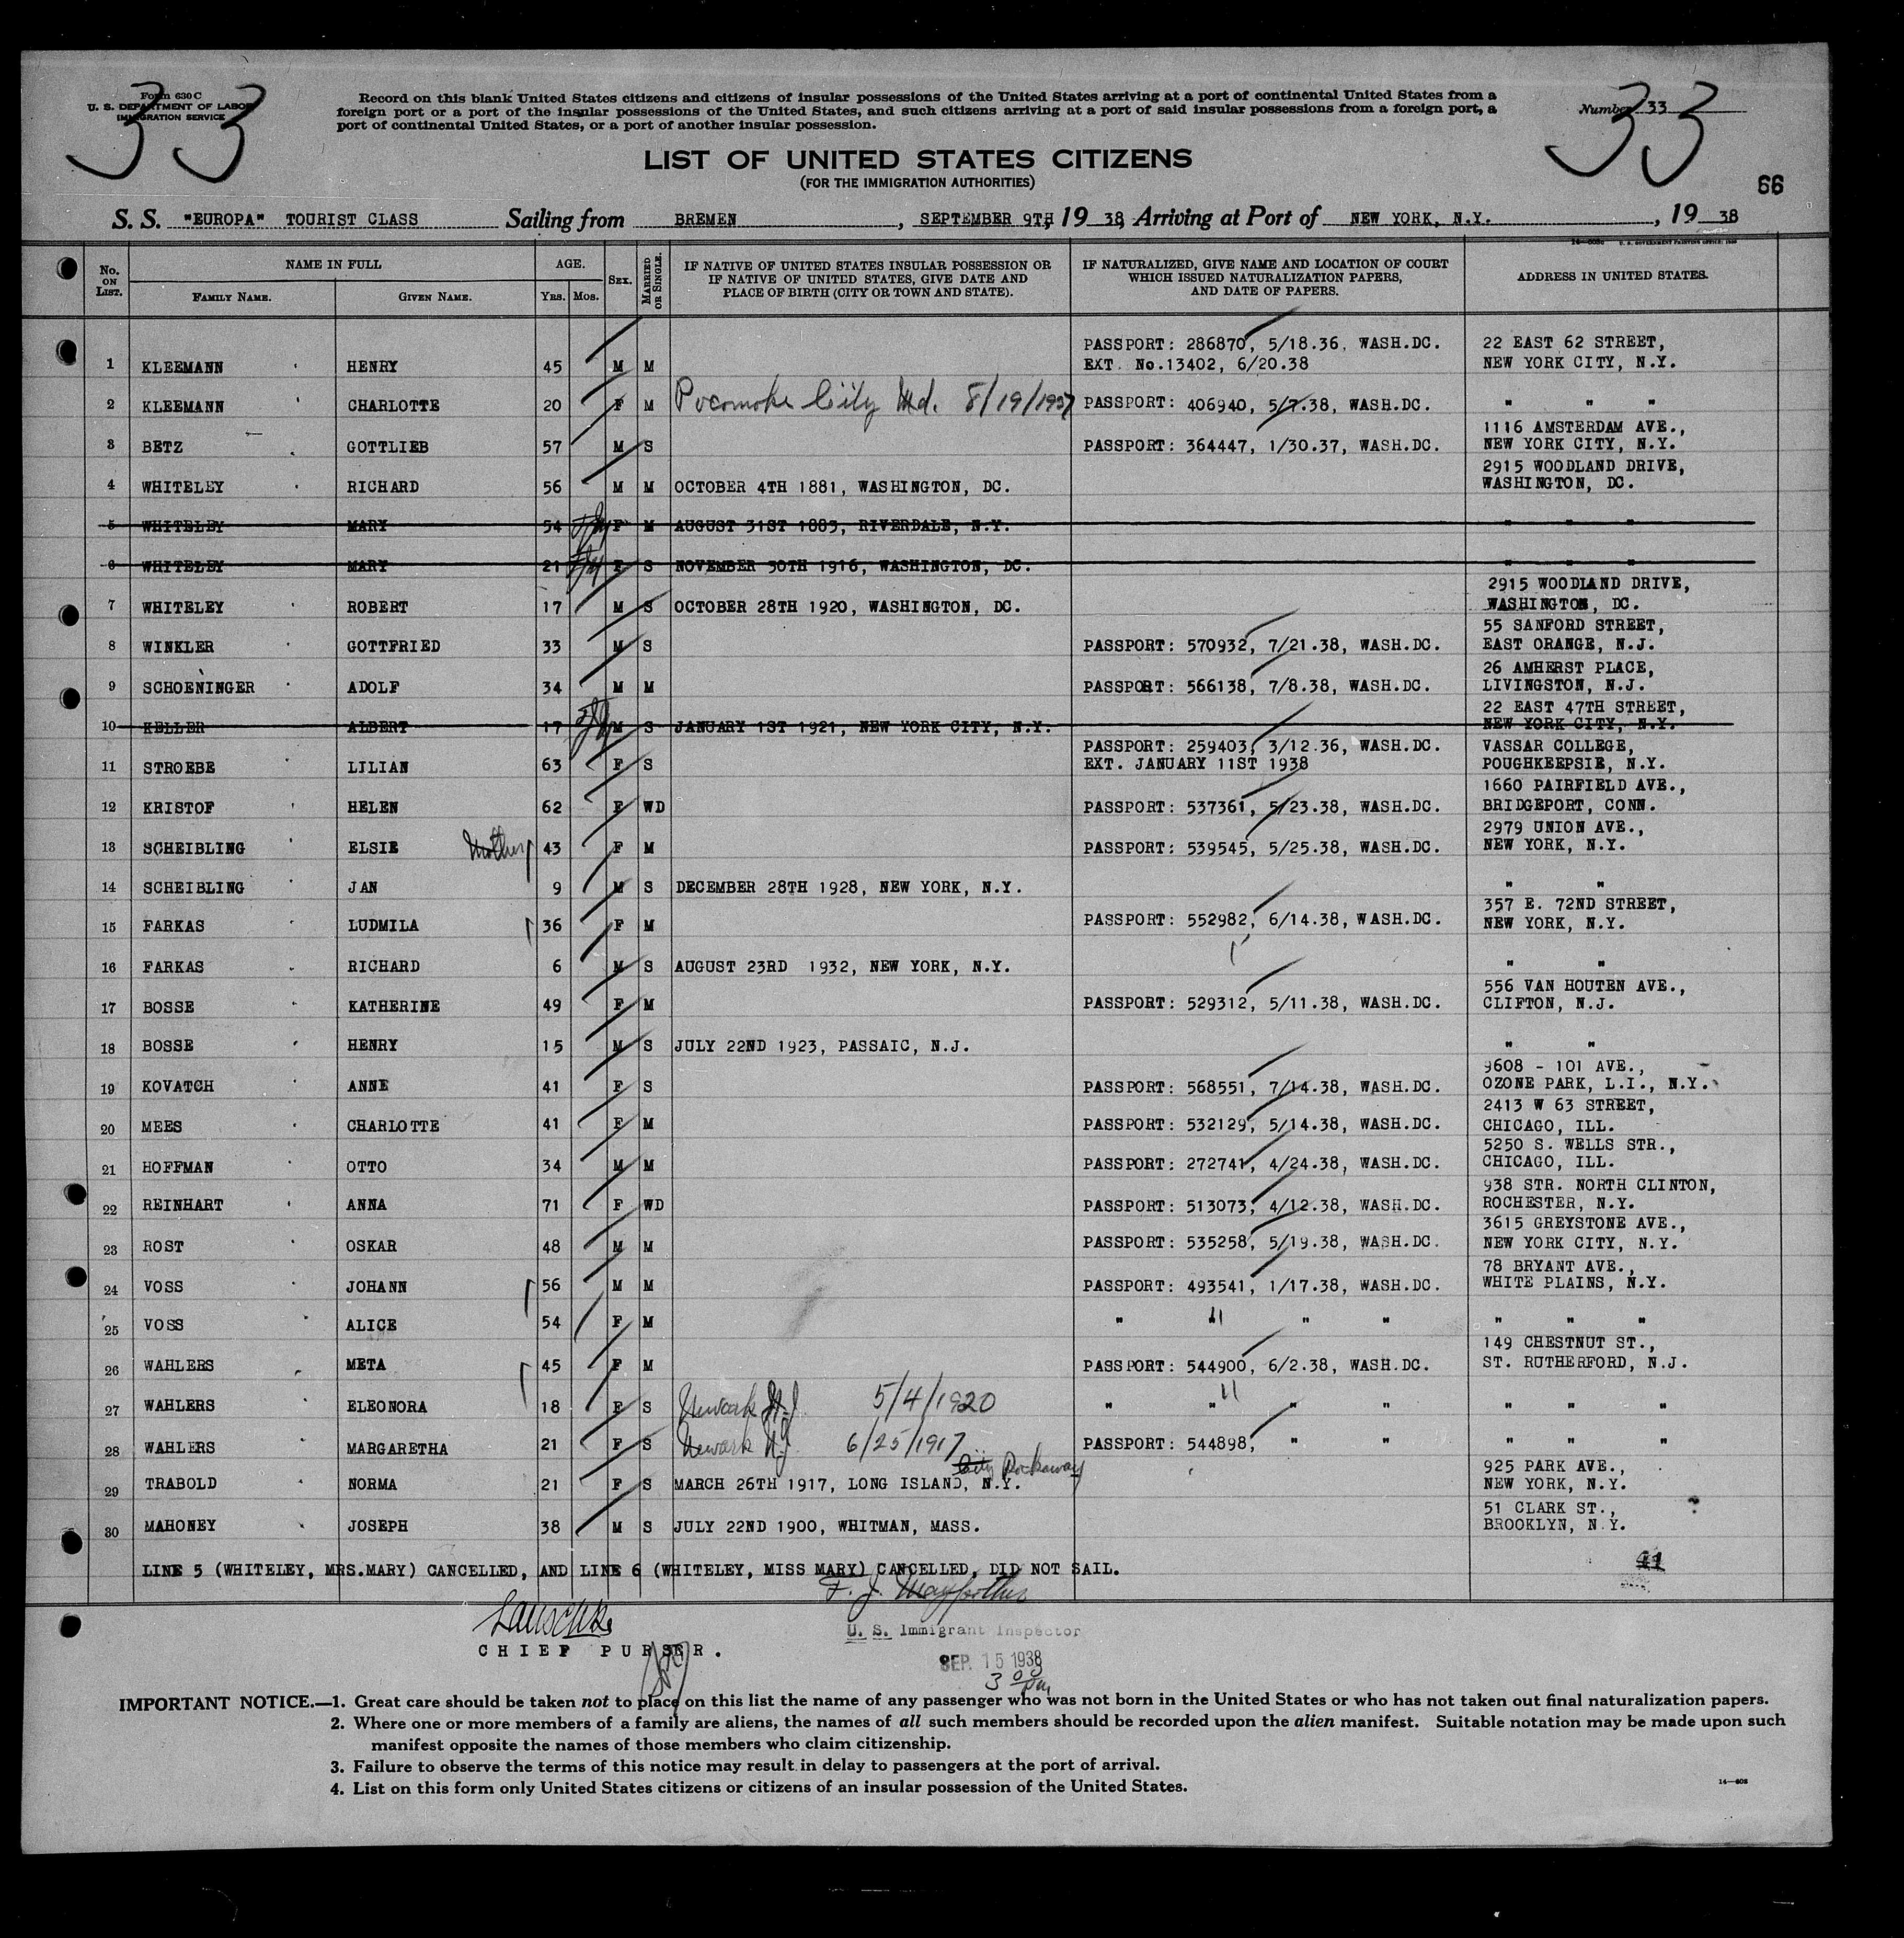 33
33
Form 630 C
U. S. DEPARTMENT OF LABOR
IMMIGRATION SERVICE
Record on this blank United States citizens and citizens of insular possessions of the United States arriving at a port of continental United States from a
foreign port or a port of the insular possessions of the United States, and such citizens arriving at a port of said insular possessions from a foreign port, a
port of continental United States, or a port of another insular possession.
Number 33
LIST OF UNITED STATES CITIZENS
(FOR THE IMMIGRATION AUTHORITIES)
66
S. S. "EUROPA" TOURIST CLASS Sailing from BREMEN, SEPTEMBER 9TH, 19 38, Arriving at Port of NEW YORK, N.Y., 19 38
No. ON LIST. NAME IN FULL FAMILY NAME. GIVEN NAME. AGE. YRS. MOS. SEX. MARRIED OR SINGLE. IF NATIVE OF UNITED STATES INSULAR POSSESSION OR IF NATIVE OF UNITED STATES, GIVE DATE AND PLACE OF BIRTH (CITY OR TOWN AND STATE). IF NATURALIZED, GIVE NAME AND LOCATION OF COURT WHICH ISSUED NATURALIZATION PAPERS, AND DATE OF PAPERS. ADDRESS IN UNITED STATES.
PASSPORT: 286870, 5/18.36, WASH.DC. 22 EAST 62 STREET,
1 KLEEMANN HENRY 45 M M EXT. No.13402, 6/20.38 NEW YORK CITY, N.Y.
2 KLEEMANN CHARLOTTE 20 F M Pocomoke City Md. 8/19/1937 PASSPORT: 406940, 5/7.38, WASH.DC. " " "
1116 AMSTERDAM AVE.,
3 BETZ GOTTLIEB 57 M S PASSPORT: 364447, 1/30.37, WASH.DC. NEW YORK CITY, N.Y.
2915 WOODLAND DRIVE,
4 WHITELEY RICHARD 56 M M OCTOBER 4TH 1881, WASHINGTON, DC. WASHINGTON, DC.
5 WHITELEY MARY 54 F M AUGUST 31ST 1883, RIVERDALE, N.Y. " " "
6 WHITELEY MARY 21 F S NOVEMBER 30TH 1916, WASHINGTON, DC. " "
2915 WOODLAND DRIVE,
7 WHITELEY ROBERT 17 M S OCTOBER 28TH 1920, WASHINGTON, DC. WASHINGTON, DC.
55 SANFORD STREET,
8 WINKLER GOTTFRIED 33 M S PASSPORT: 570932, 7/21.38, WASH.DC. EAST ORANGE, N.J.
26 AMHERST PLACE,
9 SCHOENINGER ADOLF 34 M M PASSPORT: 566138, 7/8.38, WASH.DC. LIVINGSTON, N.J.
22 EAST 47TH STREET,
10 KELLER ALBERT 17 M S JANUARY 1ST 1921, NEW YORK CITY, N.Y. NEW YORK CITY, N.Y.
PASSPORT: 259403, 3/12.36, WASH.DC. VASSAR COLLEGE,
11 STROEBE LILIAN 63 F S EXT. JANUARY 11ST 1938 POUGHKEEPSIE, N.Y.
1660 PAIRFIELD AVE.,
12 KRISTOF HELEN 62 F WD PASSPORT: 537361, 5/23.38, WASH.DC. BRIDGEPORT, CONN.
2979 UNION AVE.,
13 SCHEIBLING ELSIE Mother 43 F M PASSPORT: 539545, 5/25.38, WASH.DC. NEW YORK, N.Y.
14 SCHEIBLING JAN 9 M S DECEMBER 28TH 1928, NEW YORK, N.Y. " "
357 E. 72ND STREET,
15 FARKAS LUDMILA 36 F M PASSPORT: 552982, 6/14.38, WASH.DC. NEW YORK, N.Y.
16 FARKAS RICHARD 6 M S AUGUST 23RD 1932, NEW YORK, N.Y. " "
556 VAN HOUTEN AVE.,
17 BOSSE KATHERINE 49 F M PASSPORT: 529312, 5/11.38, WASH.DC. CLIFTON, N.J.
18 BOSSE HENRY 15 M S JULY 22ND 1923, PASSAIC, N.J. " "
9608 - 101 AVE.,
19 KOVATCH ANNE 41 F S PASSPORT: 568551, 7/14.38, WASH.DC. OZONE PARK, L.I., N.Y.
2413 W 63 STREET,
20 MEES CHARLOTTE 41 F M PASSPORT: 532129, 5/14.38, WASH.DC. CHICAGO, ILL.
5250 S. WELLS STR.,
21 HOFFMAN OTTO 34 M M PASSPORT: 272741, 4/24.38, WASH.DC. CHICAGO, ILL.
938 STR. NORTH CLINTON,
22 REINHART ANNA 71 F WD PASSPORT: 513073, 4/12.38, WASH.DC. ROCHESTER, N.Y.
3615 GREYSTONE AVE.,
23 ROST OSKAR 48 M M PASSPORT: 535258, 5/19.38, WASH.DC. NEW YORK CITY, N.Y.
78 BRYANT AVE.,
24 VOSS JOHANN 56 M M PASSPORT: 493541, 1/17.38, WASH.DC. WHITE PLAINS, N.Y.
25 VOSS ALICE 54 F M " " " " " " "
149 CHESTNUT ST.,
26 WAHLERS META 45 F M PASSPORT: 544900, 6/2.38, WASH.DC. ST. RUTHERFORD, N.J.
27 WAHLERS ELEONORA 18 F S Newark N.J. 5/4/1920 " " " " " " "
28 WAHLERS MARGARETHA 21 F S Newark N.J. 6/25/1917 PASSPORT: 544898, " " " " "
City Rockaway 925 PARK AVE.,
29 TRABOLD NORMA 21 F S MARCH 26TH 1917, LONG ISLAND, N.Y. NEW YORK, N.Y.
51 CLARK ST.,
30 MAHONEY JOSEPH 38 M S JULY 22ND 1900, WHITMAN, MASS. BROOKLYN, N.Y.
LINE 5 (WHITELEY, MRS.MARY) CANCELLED, AND LINE 6 (WHITELEY, MISS MARY) CANCELLED, DID NOT SAIL.
CHIEF PURSER.
U. S. Immigrant Inspector
SEP. 15 1938
3 00 pm
IMPORTANT NOTICE.—1. Great care should be taken not to place on this list the name of any passenger who was not born in the United States or who has not taken out final naturalization papers.
2. Where one or more members of a family are aliens, the names of all such members should be recorded upon the alien manifest. Suitable notation may be made upon such
manifest opposite the names of those members who claim citizenship.
3. Failure to observe the terms of this notice may result in delay to passengers at the port of arrival.
4. List on this form only United States citizens or citizens of an insular possession of the United States.